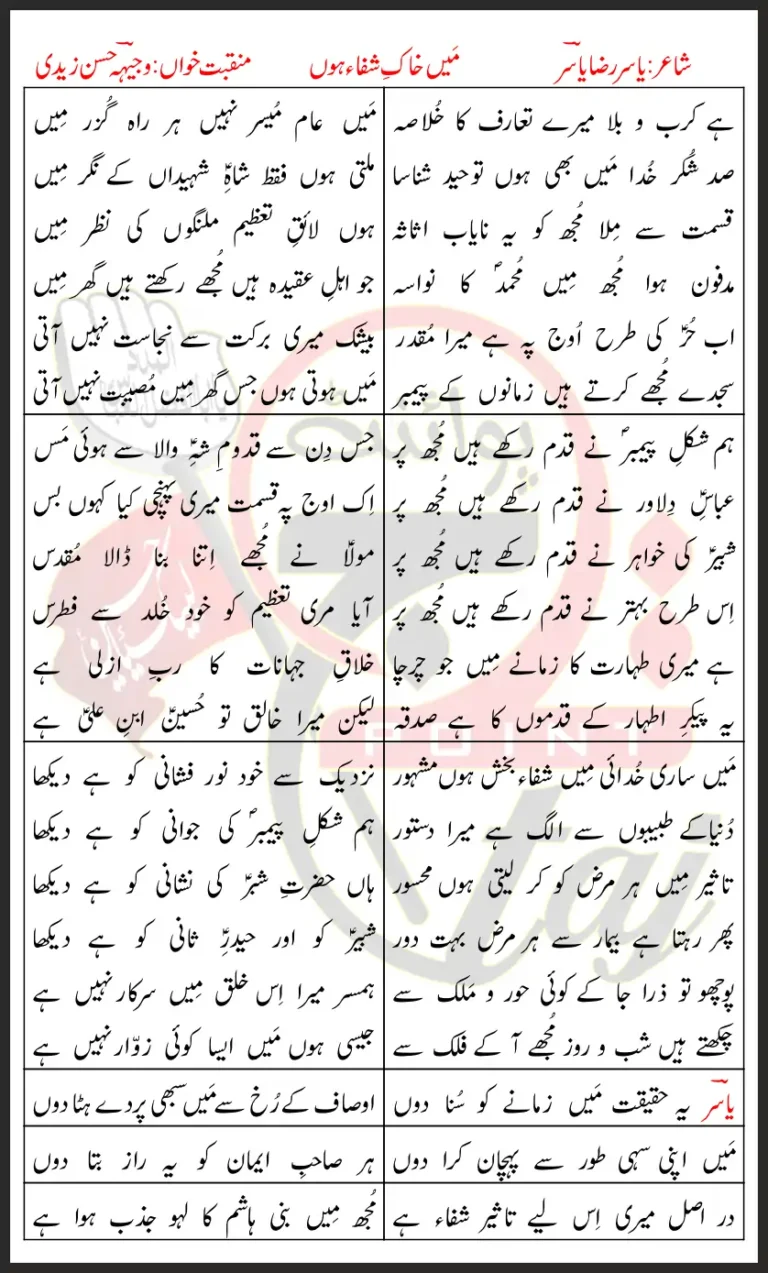 شاعر: یاسر رضا یاسرؔ
مَیں خاکِ شفاء ہوں
منقبت خواں: وجیہہ حسن زیدی
ہے کرب و بلا میرے تعارف کا خُلاصہ
صد شُکر خُدا مَیں بھی ہوں توحید شناسا
قسمت سے مِلا مُجھ کو یہ نایاب اثاثہ
مدفون ہوا مُجھ مِیں مُحمدؐ کا نواسہ
اب حُرؑ کی طرح اُوج پہ ہے میرا مُقدر
سجدے مُجھے کرتے ہیں زمانوں کے پیمبر
مَیں عام مُیسر نہیں ہر راہ گُزر مِیں
ملتی ہوں فقط شاہِؑ شہیداں کے نگر مِیں
ہوں لائقِ تعظیم ملنگوں کی نظر مِیں
جو اہلِ عقیدہ ہیں مُجھے رکھتے ہیں گھر مِیں
بیشک میری برکت سے نجاست نہیں آتی
مَیں ہوتی ہوں جس گھر مِیں مُصیبت نہیں آتی
ہم شکلِ پیمبرؐ نے قدم رکھے ہیں مُجھ پر
عباسِؑ دِلاور نے قدم رکھے ہیں مُجھ پر
شبیرؑ کی خواہر نے قدم رکھے ہیں مُجھ پر
اِس طرح بہتر نے قدم رکھے ہیں مُجھ پر
ہے میری طہارت کا زمانے مِیں جو چرچا
یہ پیکرِ اطہار کے قدموں کا ہے صدقہ
جس دِن سے قدومِ شہِؑ والا سے ہوئی مَس
اِک اوج پہ قسمت میری پہنچی کیا کہوں بس
مولاؑ نے مُجھے اِتنا بنا ڈالا مُقدس
آیا مری تعظیم کو خود خُلد سے فطرس
خلاقِ جہانات کا ربِ ازلی ہے
لیکن میرا خالق تو حُسینؑ ابنِ علیؑ ہے
مَیں ساری خُدائی مِیں شفاء بخش ہوں مشہور
دُنیا کے طبیبوں سے الگ ہے میرا دستور
تاثیر مِیں ہر مرض کو کر لیتی ہوں محسور
پھر رہتا ہے بیمار سے ہر مرض بہت دور
پوچھو تو ذرا جا کے کوئی حور و مَلک سے
چکھتے ہیں شب و روز مُجھے آ کے فلک سے
نزدیک سے خود نور فشانی کو ہے دیکھا
ہم شکلِ پیمبرؐ کی جوانی کو ہے دیکھا
ہاں حضرتِ شبرؑ کی نشانی کو ہے دیکھا
شبیرؑ کو اور حیدرِؑ ثانی کو ہے دیکھا
ہمسر میرا اِس خلق مِیں سرکار نہیں ہے
جیسی ہوں مَیں ایسا کوئی زوّار نہیں ہے
یاسرؔ یہ حقیقت مَیں زمانے کو سُنا دوں
اوصاف کے رُخ سے مَیں سبھی پردے ہٹا دوں
مَیں اپنی سہی طور سے پہچان کرا دوں
ہر صاحبِ ایمان کو یہ راز بتا دوں
در اصل میری اِس لیے تاثیر شفاء ہے
مُجھ مِیں بنی ہاشم کا لہو جذب ہوا ہے
پوائنٹ
POINT
Taj